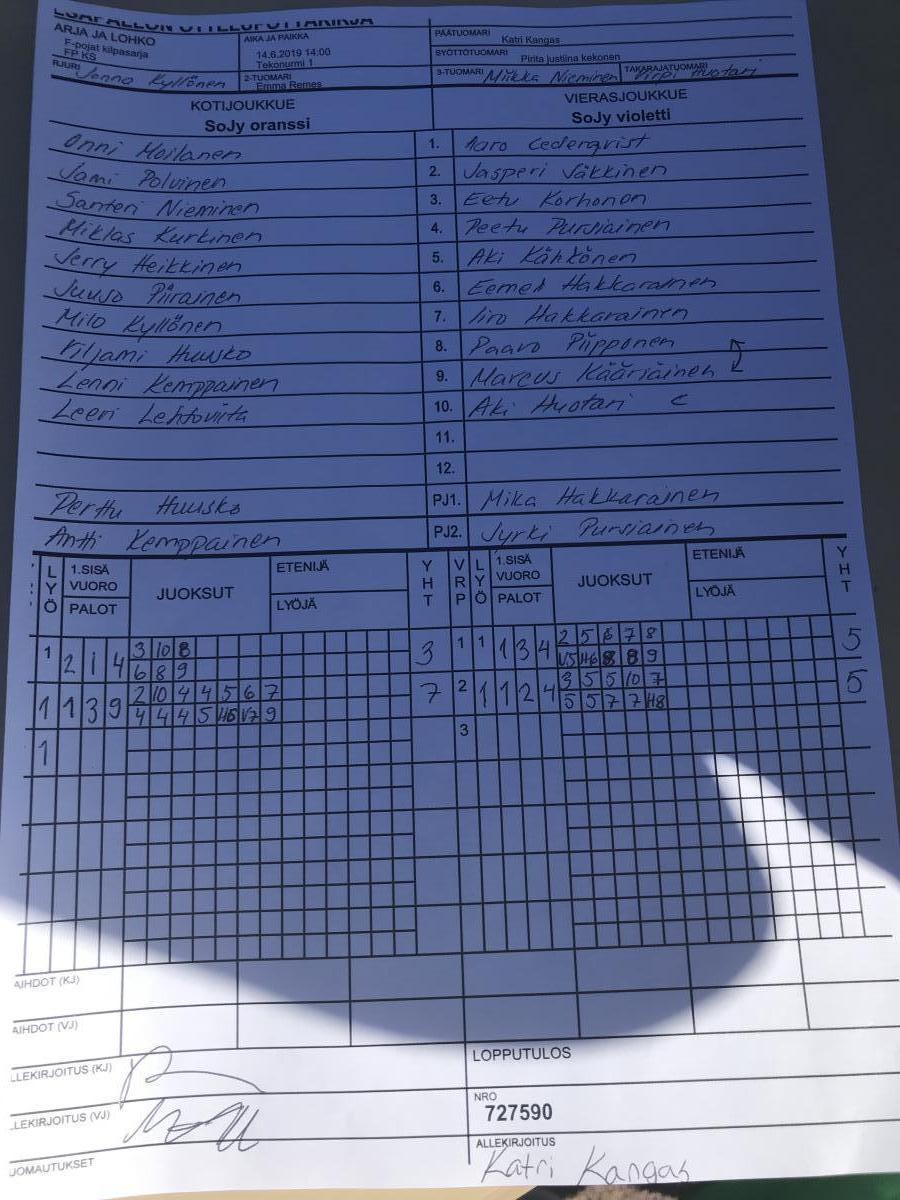 PESÄPALLON OTTELUPÖYTÄKIRJA
ARJA JA LOHKO
F-pojat kilpasarja
FP KS
AIKA JA PAIKKA
14.6.2019 14:00
Tekonurmi 1
PÄÄTUOMARI
Katri Kangas
SYÖTTÖTUOMARI
Pirita justiina kekonen
RJURI Jonno Kyllönen
2-TUOMARI
Emma Remes
3-TUOMARI Miikka Nieminen TAKARAJATUOMARI Virpi Huotari
KOTIJOUKKUE
SoJy oranssi
VIERASJOUKKUE
SoJy violetti
Onni Moilanen 1. Aaro Cederqvist
Jami Polvinen 2. Jasperi Väkkinen
Santeri Nieminen 3. Eetu Korhonen
Miklas Kurkinen 4. Peetu Pursiainen
Jerry Heikkinen 5. Aki Kähkönen
Juuso Piirainen 6. Eemel Hakkarainen
Milo Kyllönen 7. Iiro Hakkarainen
Viljami Huusko 8. Paavo Piipponen
Lenni Kemppainen 9. Marcus Kääriäinen
Leevi Lehtovirta 10. Aki Huotari C
11.
12.
Perttu Huusko PJ1. Mika Hakkarainen
Antti Kemppainen PJ2. Jyrki Pursiainen
LYÖ 1.SISÄ VUORO PALOT JUOKSUT ETENIJÄ LYÖJÄ YHT VRP LYÖ 1.SISÄ VUORO PALOT JUOKSUT ETENIJÄ LYÖJÄ YHT
1 2 1 4 3 10 8 3 1 1 1 3 4 2 5 6 7 8 5
6 8 9 V5 H6 8 8 9
1 1 3 9 2 10 4 4 5 6 7 7 2 1 1 2 4 3 5 5 10 7 5
4 4 4 5 H5 V7 9 5 5 7 7 H8
1 3
AIHDOT (KJ)
AIHDOT (VJ)
LLEKIRJOITUS (KJ)
LOPPUTULOS
LEKIRJOITUS (VJ)
NRO
727590
UOMAUTUKSET
ALLEKIRJOITUS
Katri Kangas